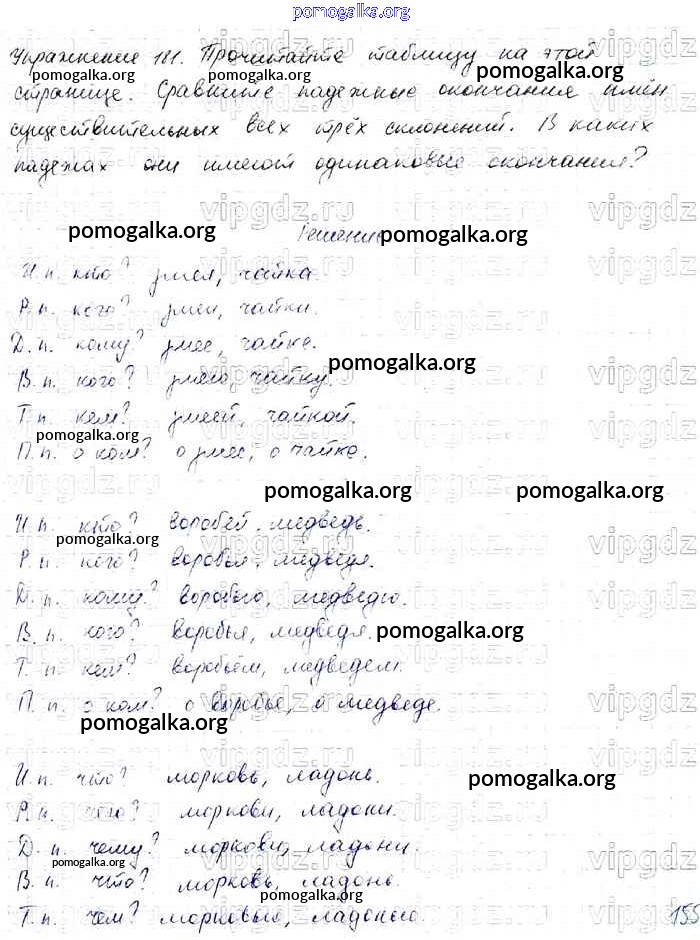 pomogalka.org
Упражнение 181. Прочитайте таблицу на этой
pomogalka.org pomogalka.org
странице. Сравните падежные окончания имён
существительных всех трёх склонений. В каких
падежах они имеют одинаковые окончания?
vipgdz.ru vipgdz.ru vipgdz
pomogalka.org Решение pomogalka.org
И.п. кто? змея, чайка.
Р.п. кого? змеи, чайки.
Д.п. кому? змее, чайке.
pomogalka.org
В.п. кого? змею, чайку.
Т.п. кем? змеёй, чайкой.
pomogalka.org
П.п. о ком? о змее, о чайке.
pomogalka.org pomogalka.org
И.п. кто? воробей, медведь.
pomogalka.org
Р.п. кого? воробья, медведя.
Д.п. кому? воробью, медведю.
В.п. кого? воробья, медведя. pomogalka.org
Т.п. кем? воробьём, медведем.
П.п. о ком? о воробье, о медведе.
pomogalka.org
И.п. что? морковь, ладонь.
pomogalka.org
Р.п. чего? моркови, ладони.
Д.п. чему? моркови, ладони.
pomogalka.org
В.п. что? морковь, ладонь.
pomogalka.org
Т.п. чем? морковью, ладонью.
155